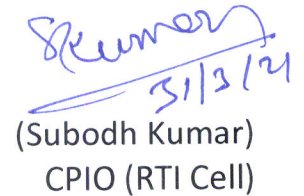 SKumar
31/3/21
(Subodh Kumar)
CPIO (RTI Cell)